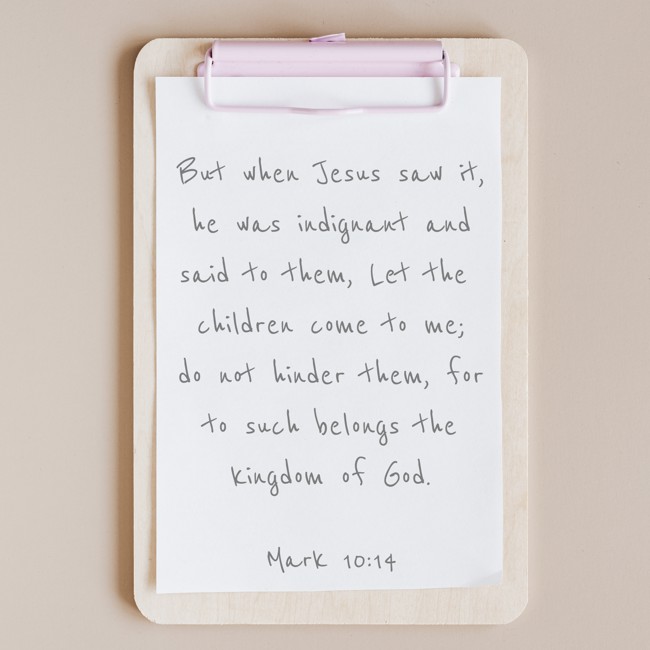 But when Jesus saw it,
he was indignant and
said to them, Let the
children come to me;
do not hinder them, for
to such belongs the
kingdom of God.
Mark 10:14